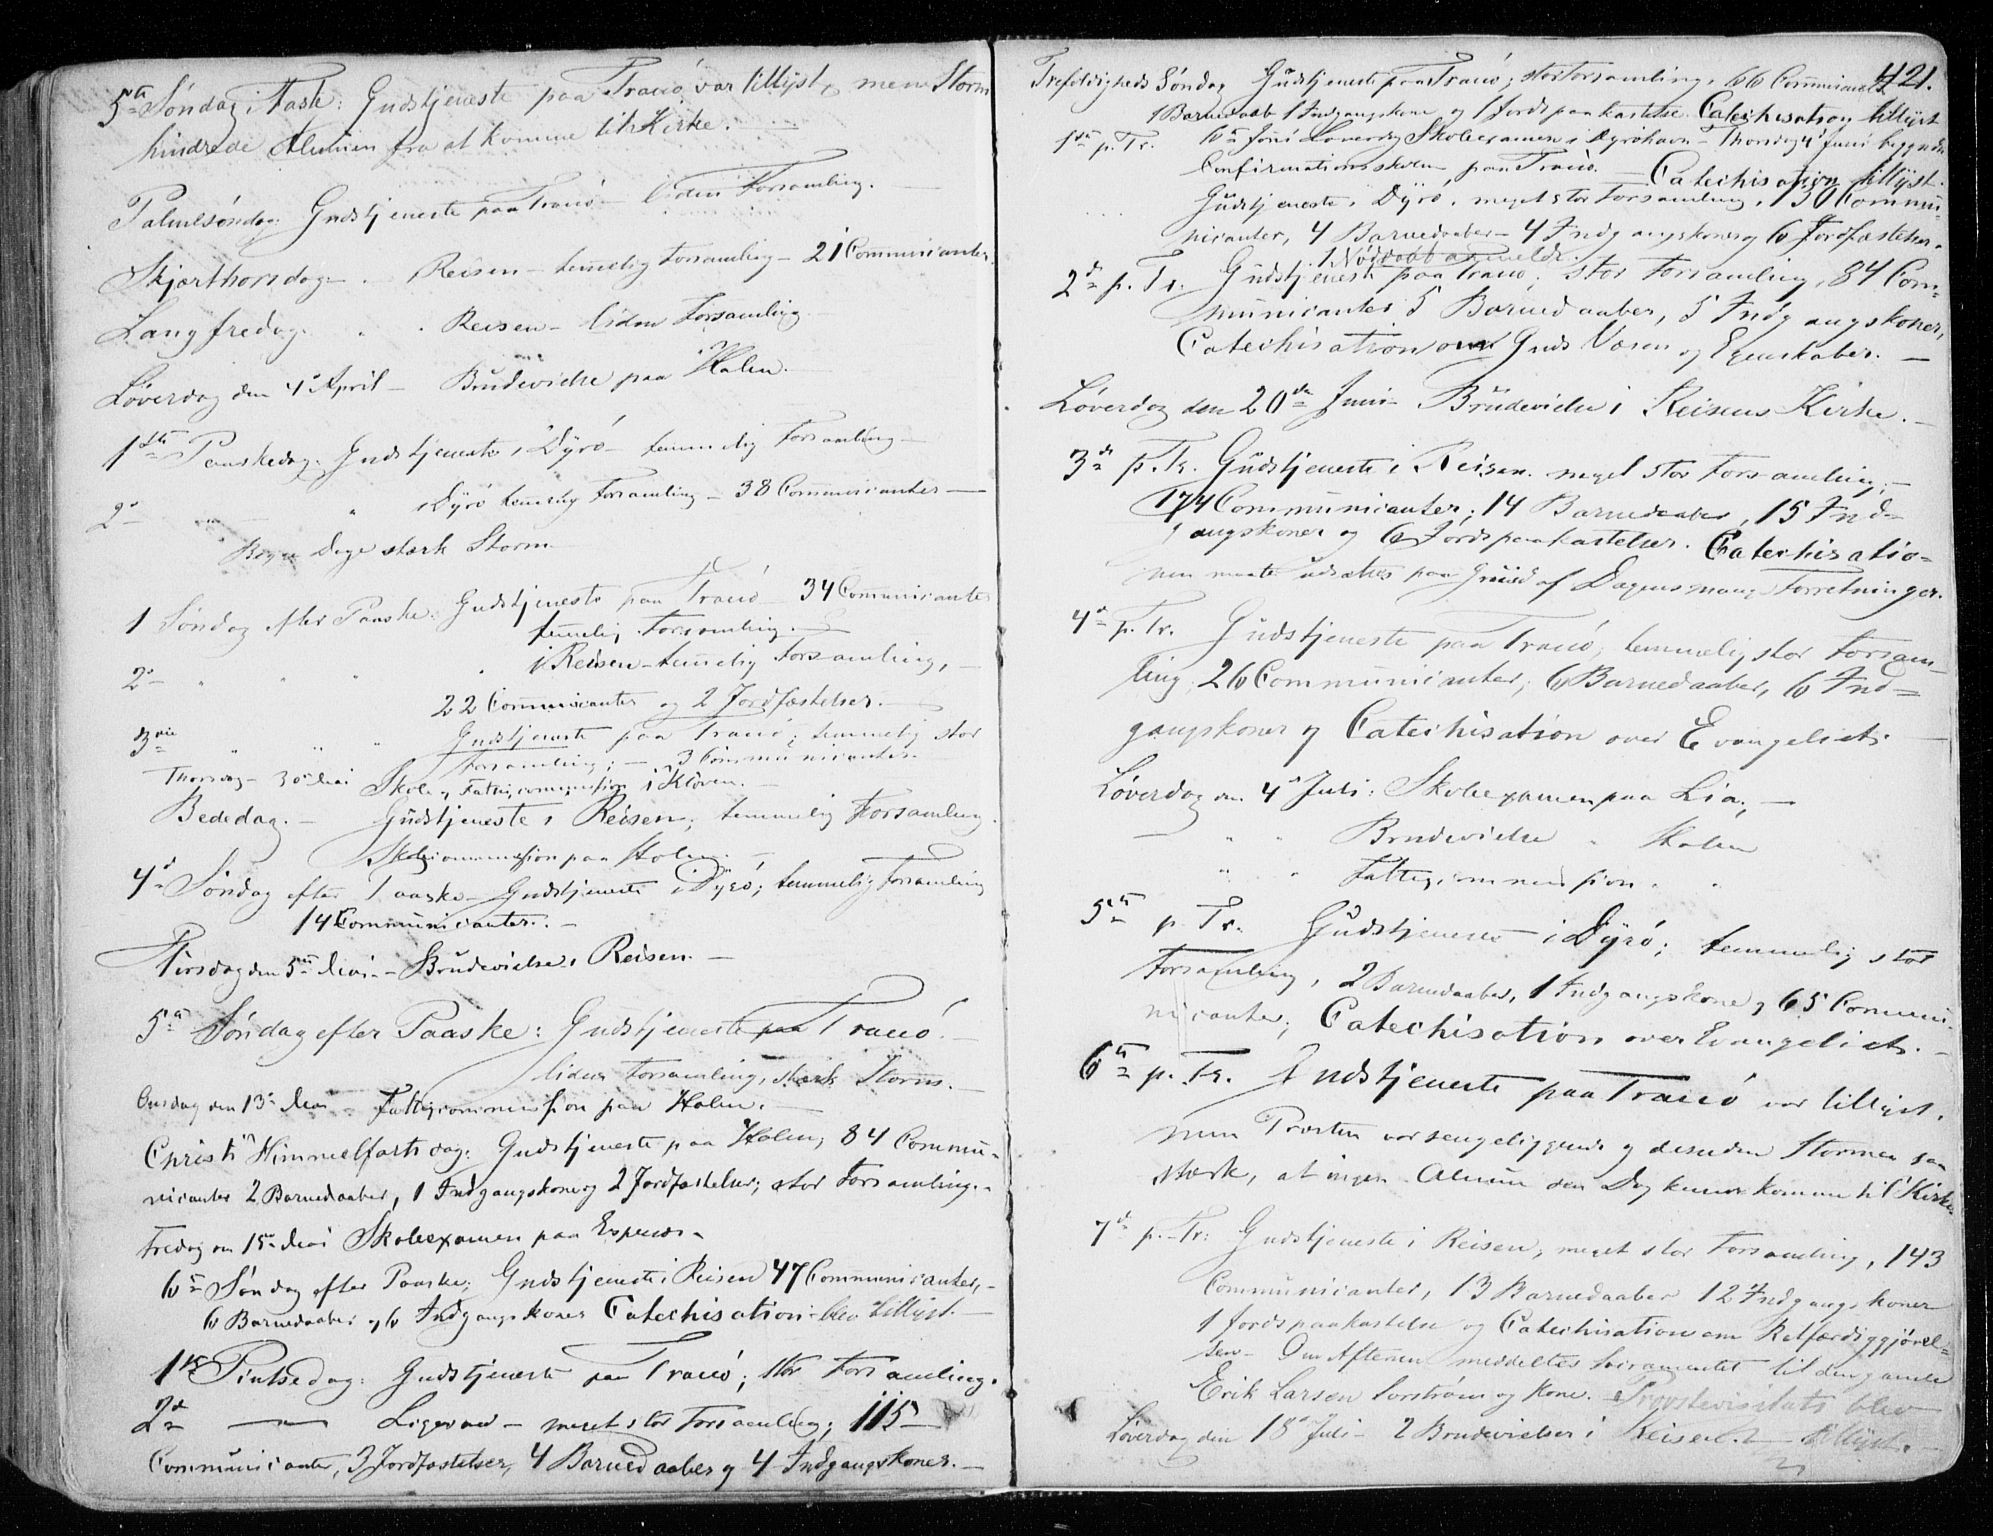 5te Søndag i Faste: Gudstjeneste paa Tranö var tillyst, men Storm
hindrede Almuen fra at komme til Kirke.
Palmesøndag: Gudstjeneste paa Tranö – liden Forsamling.
Skjærthorsdag – " Reisen – temmelig Forsamling – 21 Communicanter.
Langfredag. " " Reisen – liden Forsamling
Løverdag den 4de April – Brudevielse paa Holen.
1ste Paaskedag: Gudstjeneste i Dyrö – temmelig Forsamling –
2den " " i Dyrö temmelig Forsamling – 38 Communicanter –
Begge Dage stærk Storm.
1 Søndag efter Paaske: Gudstjeneste paa Tranö – 34 Communicanter
temmelig Forsamling. –
2den " " " " i Reisen – temmelig Forsamling, –
22 Communicanter og 2 Jordfæstelser. –
3die " " " Gudstjeneste paa Tranö; temmelig stor
Forsamling; – 3 Communicanter. –
Thorsdag – 30te Skole og Fattigcommission i Kløven. –
Bededag. – Gudstjeneste i Reisen; temmelig Forsamling.
Skolecommission paa Holen. –
4de Søndag efter Paaske – Gudstjeneste i Dyrö; temmelig Forsamling
14 Communicanter. –
Tirsdag den 5te Mai – Brudevielse i Reisen. –
5te Søndag efter Paaske: Gudstjeneste paa Tranö. –
liden Forsamling, stærk Storm. –
Onsdag den 13de Mai – Fattigcommission paa Holen. –
Christi Himmelfartsdag: Gudstjeneste paa Holen; 84 Commu-
nicanter 2 Barnedaaber, 1 Indgangskone og 2 Jordfæstelser; stor Forsamling. –
Fredag den 15de Mai Skoleexamen paa Espenes –
6te Søndag efter Paaske: Gudstjeneste i Reisen 47 Communicanter, –
6 Barnedaaber og 6 Indgangskoner Catechisation blev tillyst. –
1ste Pintsedag: Gudstjeneste paa Tranö; stor Forsamling.
2den — Ligesaa – meget stor Forsamling; 115
Communicanter, 3 Jordfæstelser, 4 Barnedaaber og 4 Indgangskoner. –
421.
Trefoldigheds Søndag Gudstjeneste paa Tranö; stor Forsamling, 66 Communicanter
1 Barnedaab 1 Indgangskone og 1 Jordspaakastelse. Catechisation tillyst
1ste p. Tr. 6te Juni Løverdag Skoleexamen i Dyröhavn – Thorsdag 4de Juni begyndte
Confirmationsskolen paa Tranö. – Catechisation tillyst.
Gudstjeneste i Dyrö, meget stor Forsamling, 130 Commu-
nicanter, 4 Barnedaaber – 4 Indgangskoner og 6 Jordfæstelser.
1 Nøddaab anmeldt.
2den p. Tr. Gudstjeneste paa Tranö; stor Forsamling, 84 Com-
municanter 5 Barnedaaber, 5 Indgangskoner,
Catechisation om Guds Væsen og Egenskaber. –
Løverdag den 20de Juni – Brudevielse i Reisens Kirke. –
3die p. Tr. Gudstjeneste i Reisen. meget stor Forsamling; –
174 Communicanter; 14 Barnedaaber, 15 Ind-
gangskoner og 6 Jordspaakastelser. Catechisatio-
nen maatte udsættes paa Grund af Dagens mange Forretninger.
4de p. Tr. Gudstjeneste paa Tranö; temmelig stor Forsam-
ling, 26 Communicanter, 6 Barnedaaber, 6 Ind-
gangskoner og Catechisation over Evangeliet. –
Løverdag den 4de Juli: Skoleexamen paa Lia; –
– " " Brudevielse " Holen
" " Fattigcommission " "
5te p. Tr. Gudstjeneste i Dyrö; temmelig stor
Forsamling, 2 Barnedaaber, 1 Indgangskone og 65 Commu-
nicanter; Catechisation over Evangeliet. –
6te p. Tr. Gudstjeneste paa Tranö var tillyst,
men Præsten var sengeliggende og desuden Stormen saa
stærk, at ingen Almue den Dag kunde komme til Kirke
7de p. Tr: Gudstjeneste i Reisen, meget stor Forsamling, 143
Communicanter, 13 Barnedaaber 12 Indgangskoner
1 Jordspaakastelse og Catechisation om Retfærdiggjørel-
sen – Om Aftenen meddeltes Sacramentet til den gamle
Erik Larsen Sorström og Kone. Provstevisitats blev
Løverdag den 18de Juli – 2 Brudevielser i Reisen. – tillyst. –